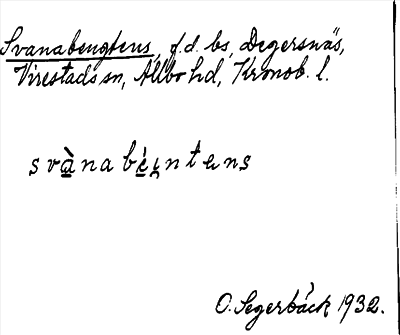 Svanabengtens, f.d. bs, Degersnäs,
Virestads sn, Allbo hd, Kronob. l.
svànabèɩntens
O. Segerbäck 1932.